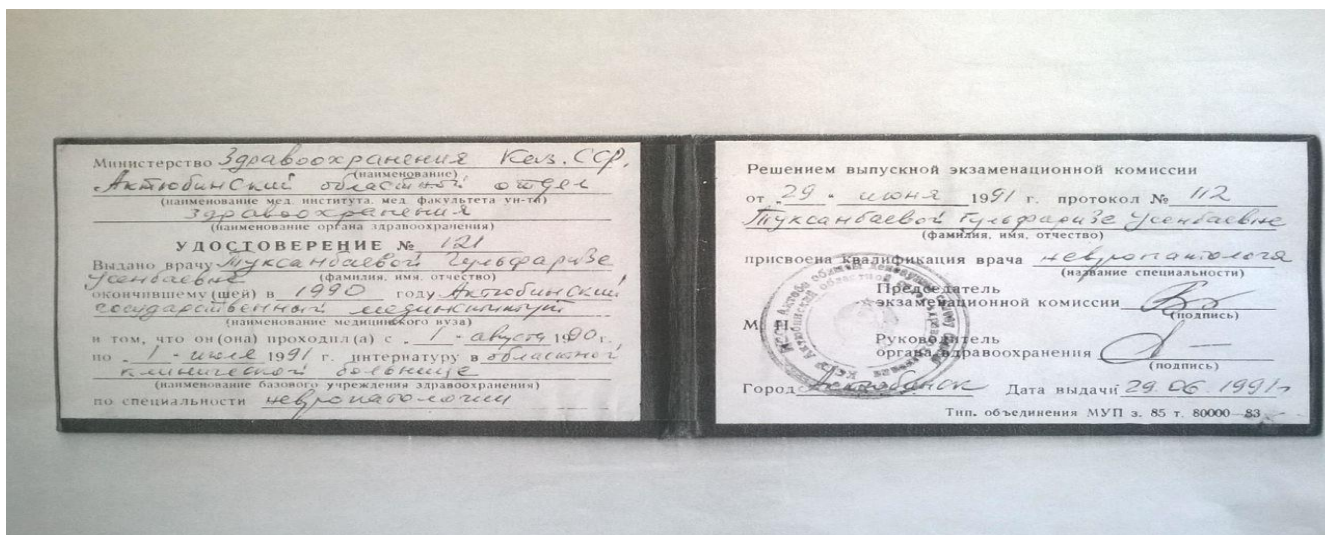 Министерство Здравоохранения Каз. ССР,
(наименование)
Актюбинский областной отдел
(наименование мед. института, мед. факультета ун-та)
здравоохранения
(наименование органа здравоохранения)
УДОСТОВЕРЕНИЕ № 121
Выдано врачу Туксанбаевой Гульфаризе
Усенбаевне
(фамилия, имя, отчество)
окончившему (шей) в 1990 году Актюбинский
государственный мединститут
(наименование медицинского вуза)
в том, что он (она) проходил (а) с „1“ августа 1990 г.
по „1“ июля 1991 г. интернатуру в областной
клинической больнице
(наименование базового учреждения здравоохранения)
по специальности невропатологии
Решением выпускной экзаменационной комиссии
от „29“ июня 1991 г. протокол № 112
Туксанбаевой Гульфаризе Усенбаевне
(фамилия, имя, отчество)
присвоена квалификация врача невропатолога
(название специальности)
Председатель
экзаменационной комиссии
(подпись)
М. П.
Руководитель
органа здравоохранения
(подпись)
Город Актюбинск Дата выдачи 29.06.1991г
Тип. объединения МУП з. 85 т. 80000—83